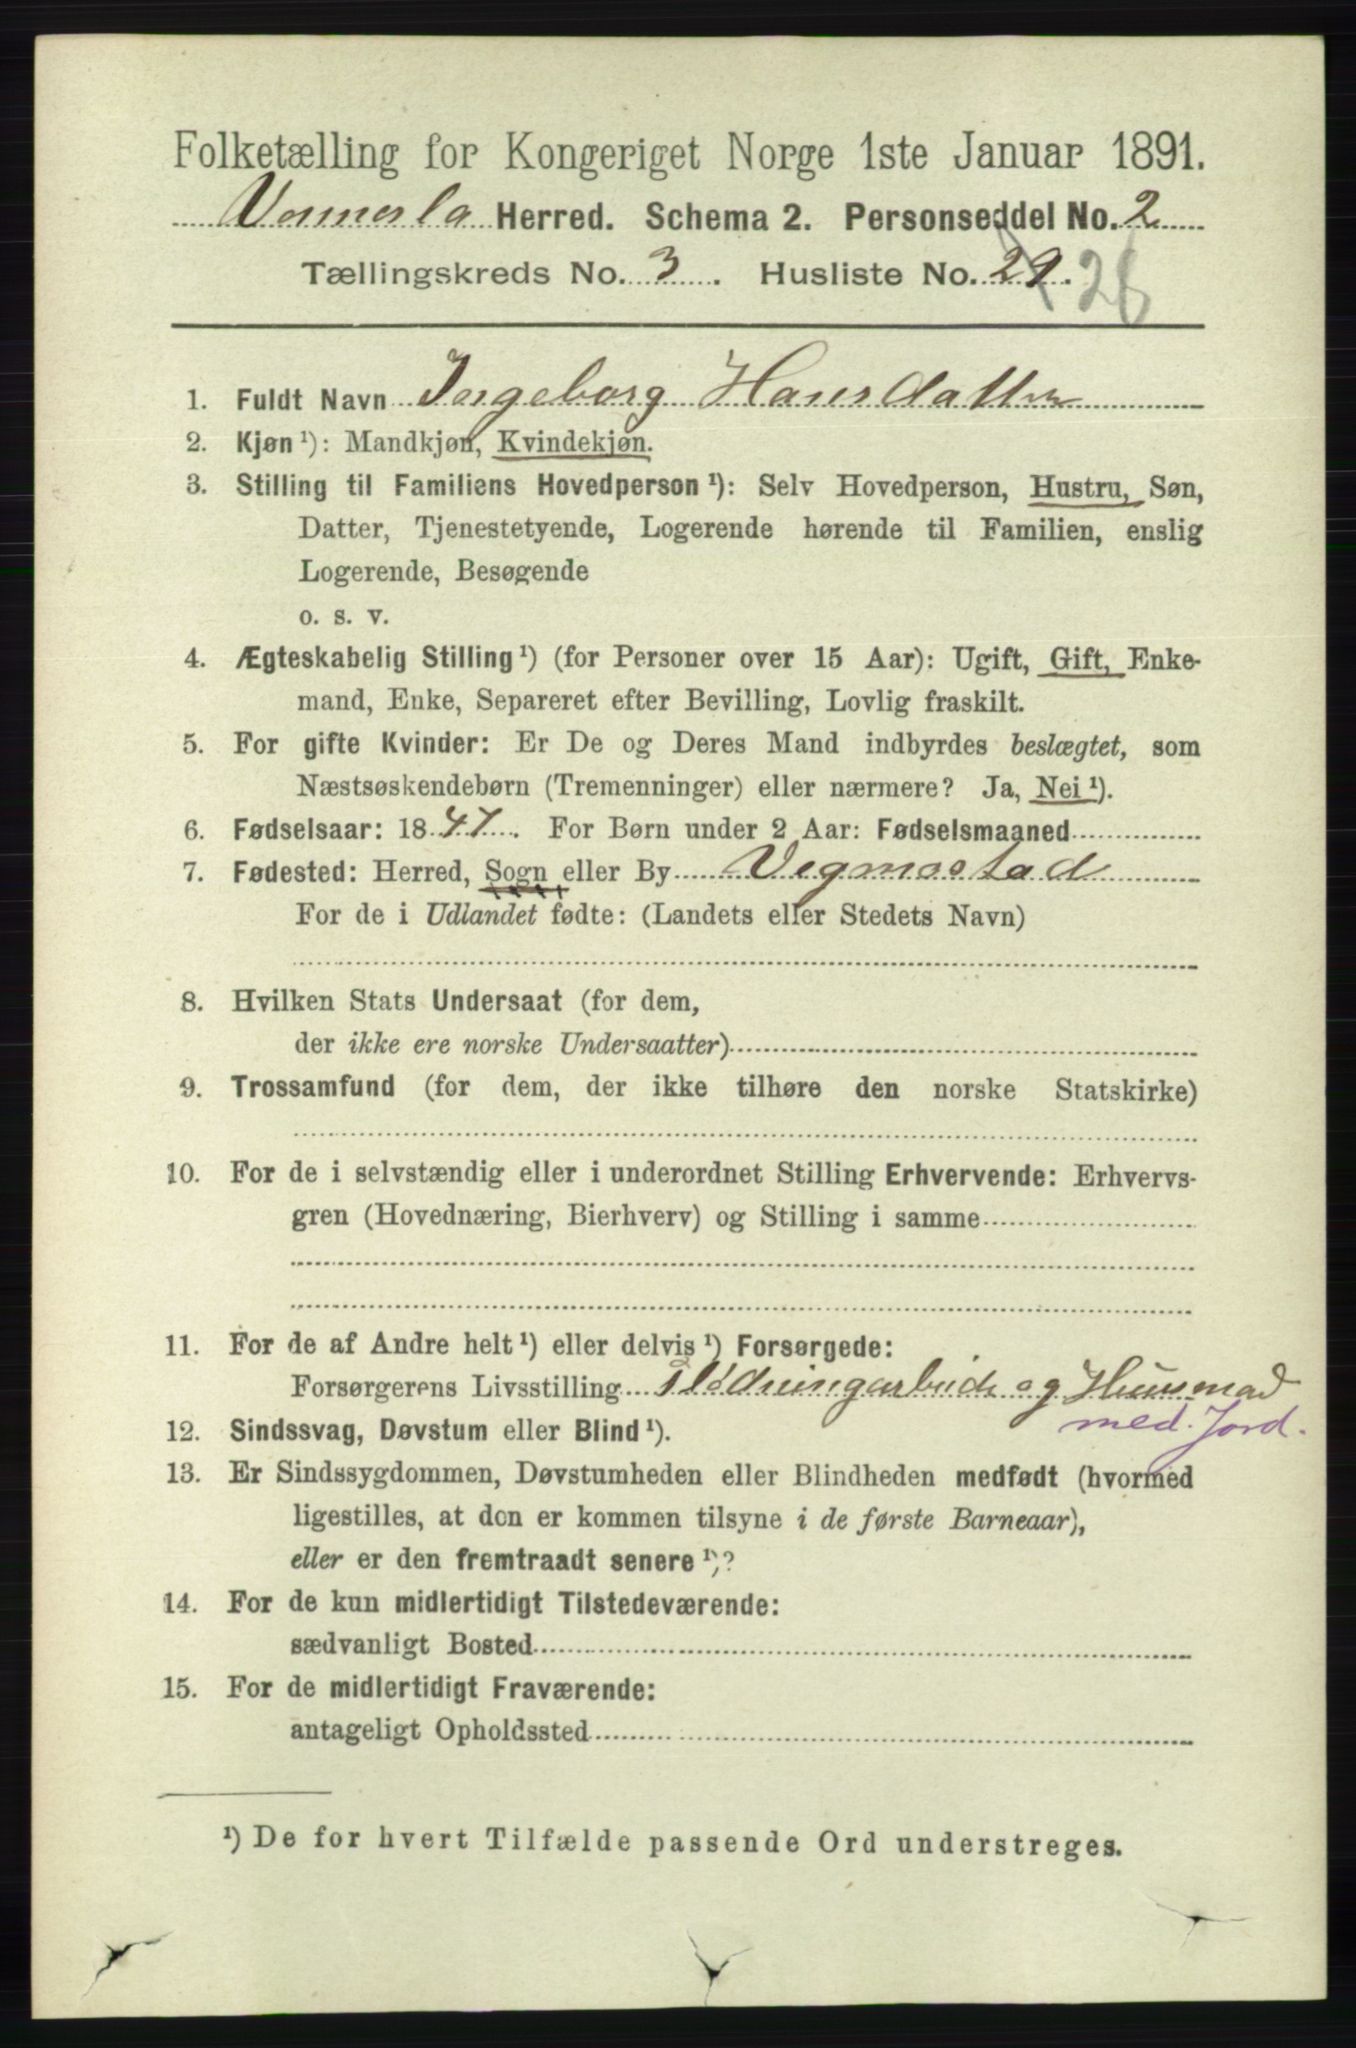 Folketælling for Kongeriget Norge 1ste Januar 1891.
Vennesla Herred. Schema 2. Personseddel No. 2
Tællingskreds No. 3. Husliste No. 29. 26
1. Fuldt Navn Ingeborg Hansdatter
2. Kjøn ¹): Mandkjøn, Kvindekjøn.
3. Stilling til Familiens Hovedperson ¹): Selv Hovedperson, Hustru, Søn,
Datter, Tjenestetyende, Logerende hørende til Familien, enslig
Logerende, Besøgende
o. s. v.
4. Ægteskabelig Stilling ¹) (for Personer over 15 Aar): Ugift, Gift, Enke-
mand, Enke, Separeret efter Bevilling, Lovlig fraskilt.
5. For gifte Kvinder: Er De og Deres Mand indbyrdes beslægtet, som
Næstsøskendebørn (Tremenninger) eller nærmere? Ja, Nei ¹).
6. Fødselsaar: 1847. For Børn under 2 Aar: Fødselsmaaned
7. Fødested: Herred, Sogn eller By Vegmostad
For de i Udlandet fødte: (Landets eller Stedets Navn)
8. Hvilken Stats Undersaat (for dem,
der ikke ere norske Undersaatter)
9. Trossamfund (for dem, der ikke tilhøre den norske Statskirke)
10. For de i selvstændig eller i underordnet Stilling Erhvervende: Erhvervs-
gren (Hovednæring, Bierhverv) og Stilling i samme
11. For de af Andre helt ¹) eller delvis ¹) Forsørgede:
Forsørgerens Livsstilling og Husmad
med Jord.
12. Sindssvag, Døvstum eller Blind ¹).
13. Er Sindssygdommen, Døvstumheden eller Blindheden medfødt (hvormed
ligestilles, at den er kommen tilsyne i de første Barneaar),
eller er den fremtraadt senere ¹)?
14. For de kun midlertidigt Tilstedeværende:
sædvanligt Bosted
15. For de midlertidigt Fraværende:
antageligt Opholdssted
¹) De for hvert Tilfælde passende Ord understreges.